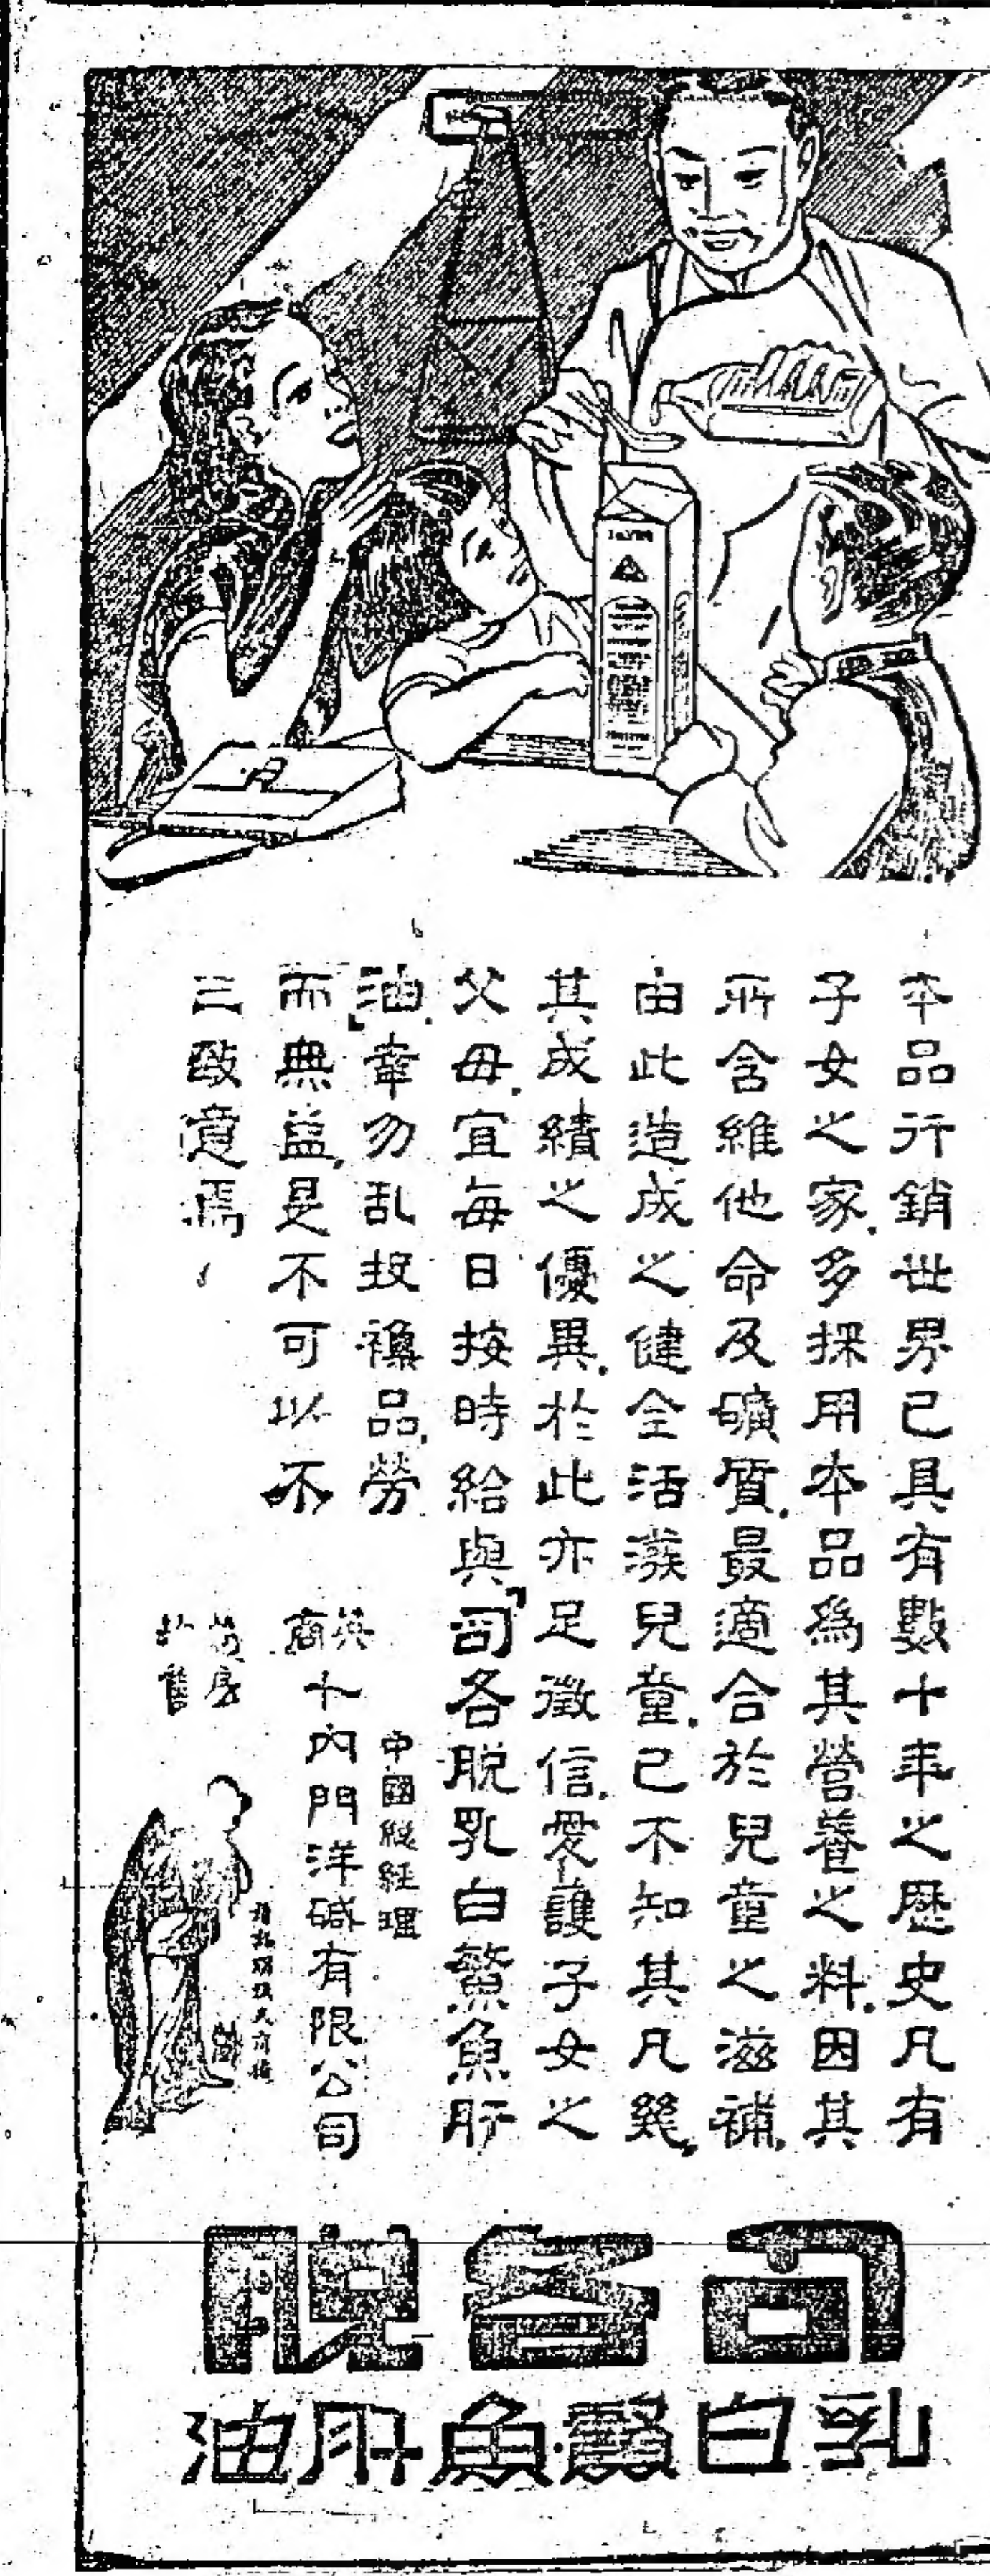 本品行銷世界已具有數十年之歷史凡有
子女之家.多採用本品為其營養之料.因其
所含維他命及礦質.最適合於兒童之滋補.
由此造成之健全活潑兒童.已不知其凡幾.
其成績之優異.於此亦足徵信.愛護子女之
父母.宜每日按時給與「司各脫乳白鰵魚肝
油」.幸勿乱投襍品.勞
而無益.是不可以不
三致意焉
中國總經理
英商卜內門洋碱有限公司
司各脫
乳白鰵魚肝油